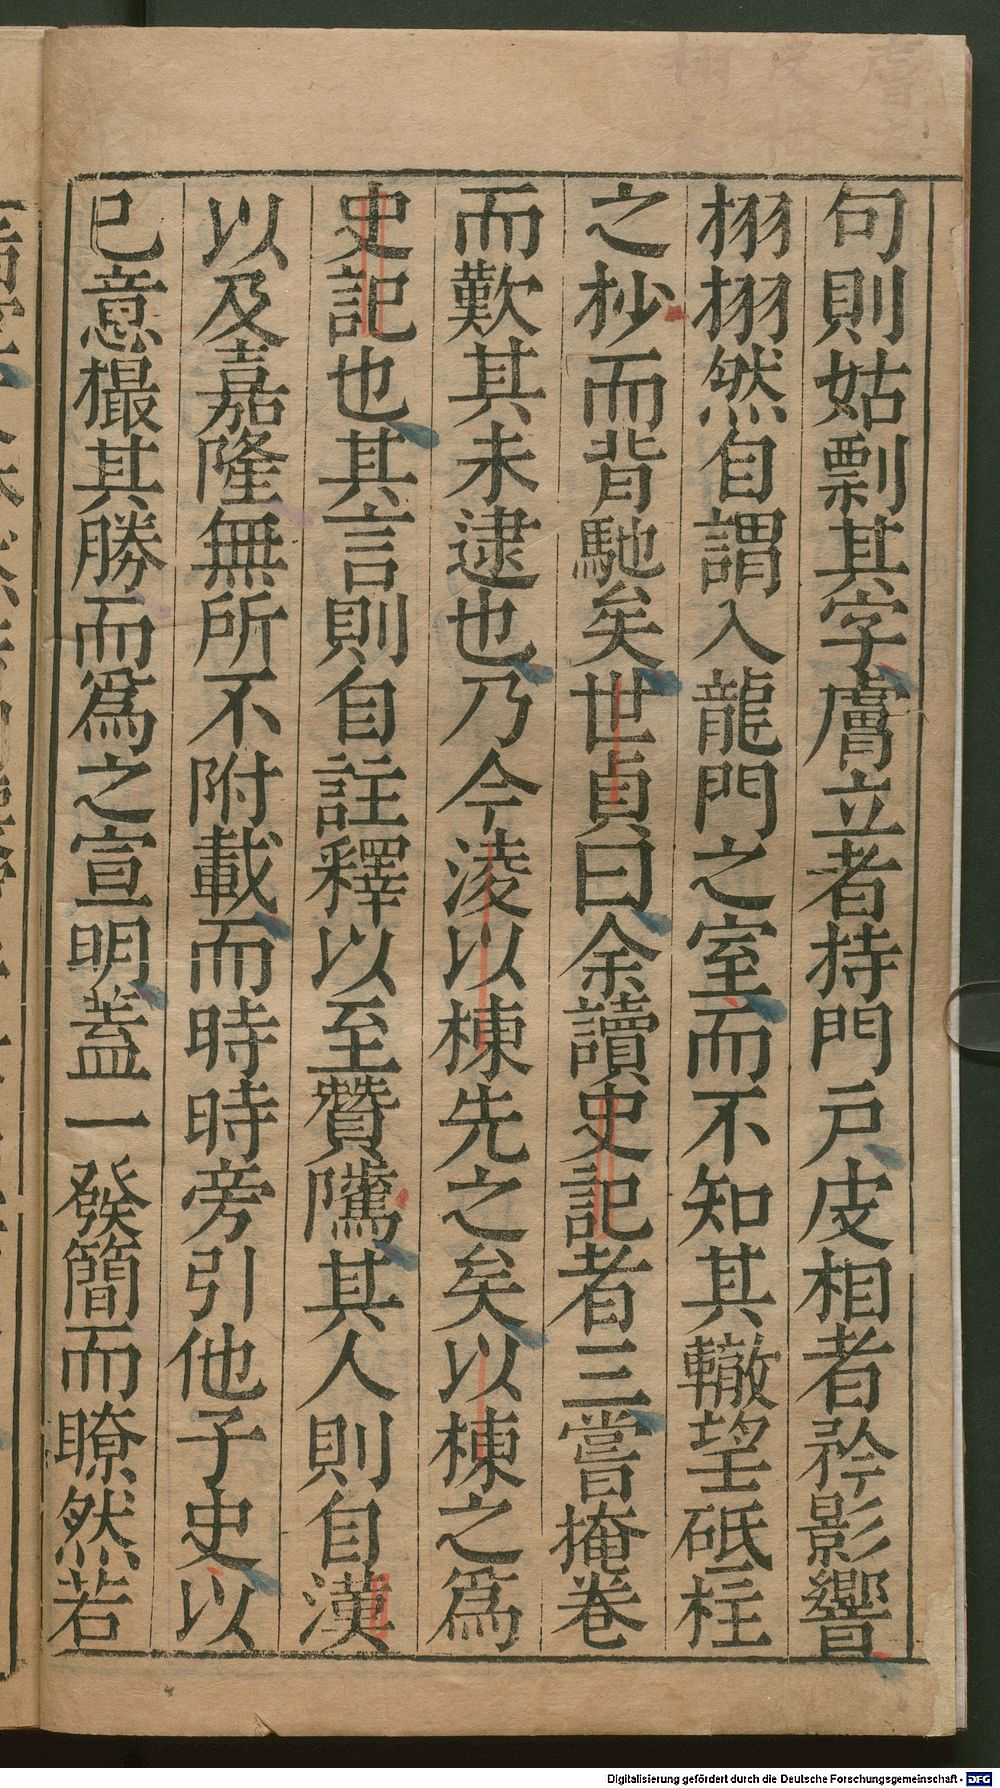 句則姑剽其字膚立者持門戶皮相者矜影響
栩栩然自謂入龍門之室而不知其轍望砥柱
之杪而背馳矣世貞曰余讀史記者三嘗掩卷
而歎其未逮也乃今淩以棟先之矣以棟之為
史記也其言則自註釋以至贊隲其人則自漢
以及嘉隆無所不附載而時時旁引他子史以
已意撮其勝而為之宣明蓋一發簡而瞭然若
Digitalisierung gefördert durch die Deutsche Forschungsgemeinschaft - DFG